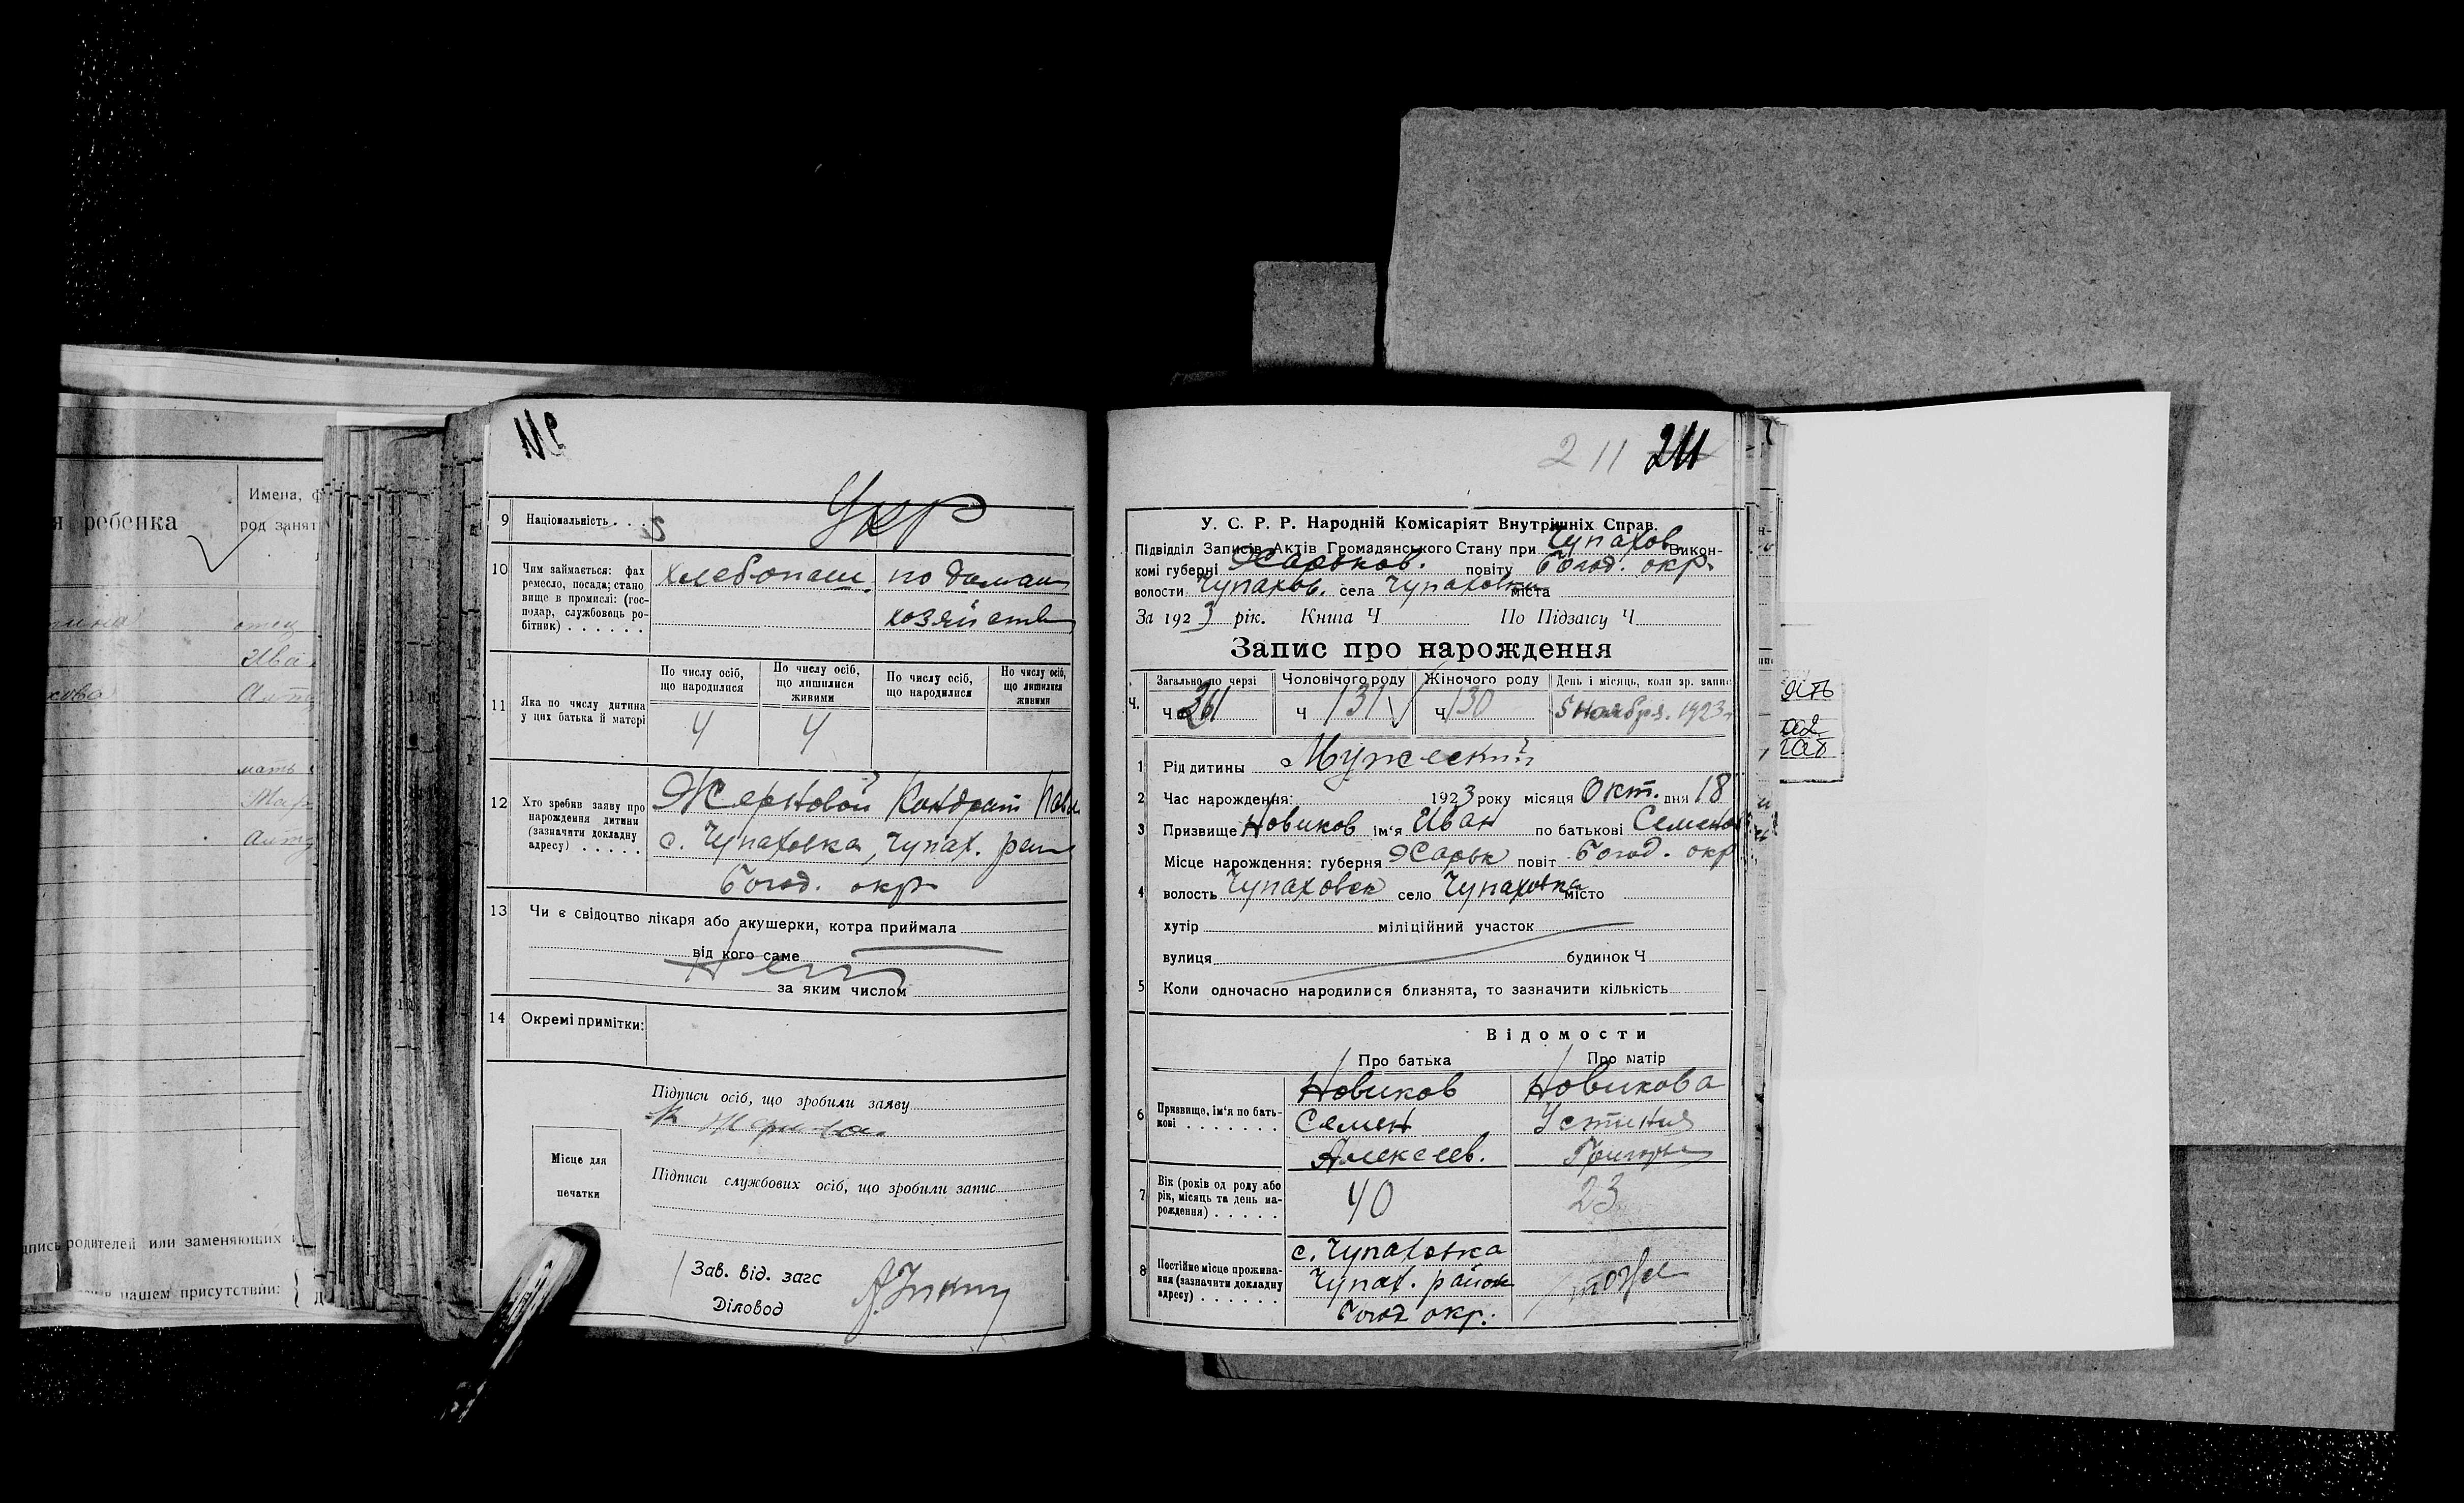 я ребенка
Имена, ф
род занят
отец
Ива
мать
Мар
дпись родителей или заменяющих
в нашем присутствии:
9 Національність . . . Укр
10 Чим займається: фах
ремесло, посада; стано
вище в промислі: (гос-
подар, службовець ро-
бітник) . . . . . .
хлебопаш. по домаш
хозяйств
11 Яка по числу дитина
у цих батька й матері
По числу осіб,
що народилися
По числу осіб,
що лишилися
живими
По числу осіб,
що народилися
Но числу осіб,
що лишилися
живими
4 4
12 Хто зробив заяву про
нарождення дитини
(зазначити докладну
адресу) . . . . .
Жерновой Кондрат Павл
с. Чупаховка, Чупах. рай
Богод. окр.
13 Чи є свідоцтво лікаря або акушерки, котра приймала
від кого саме
Нет
за яким числом
14 Окремі примітки:
Підписи осіб, що зробили заяву
Місце для
печатки
Підписи службових осіб, що зробили запис
Зав. від. загс
Діловод
211 211
У. С. Р. Р. Народній Комісаріят Внутрішніх Справ.
Підвідділ Записів Актів Громадянського Стану при Чупахов Викон-
комі губерні Харьков. повіту Богод. окр.
волости Чупахов. села Чупаховки міста
За 1923 рік. Книга Ч По Підзагсу Ч
Запис про нарождення
Ч. Загально по черзі Чоловічого роду Жіночого роду День і місяць, коли зр. запис
Ч 261 Ч 131 Ч 130 5 Ноября. 1923 г
1 Рід дитини Мужеский
2 Час нарождення: 1923 року місяця Окт. дня 18
3 Призвище Новиков ім'я Иван по батькові Семенов
Місце нарождення: губерня Харьк повіт Богод. окр
4 волость Чупаховск село Чупаховка місто
хутір міліційний участок
вулиця будинок Ч
5 Коли одночасно народилися близнята, то зазначити кількість
Відомости
Про батька Про матір
6 Призвище, ім'я по бать-
кові . . . . . . .
Новиков Новикова
Семен Устиния
Алексеев. Григорьев
7 Вік (років од роду або
рік, місяць та день на-
рождення) . . . . .
40 23
8 Постійне місце прожива-
ння (зазначити докладну
адресу) . . . . . .
с. Чупаховка
Чупах. район тоже
Богод окр.